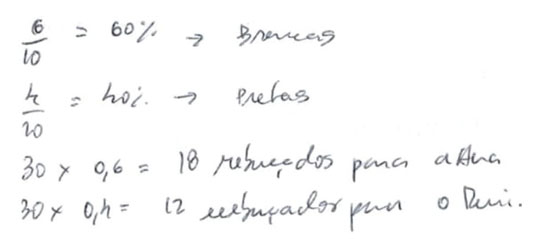 6/10 = 60% → Brancas
4/10 = 40% → Pretas
30 x 0,6 = 18 rebuçados para a Ana
30 x 0,4 = 12 rebuçados para o Rui.